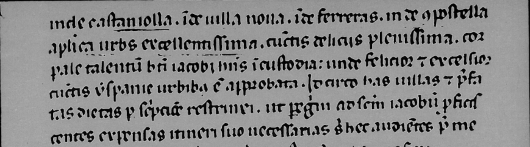 inde castaniolla. ı̃de uilla noua. ı̃de ferreras. in de ꝯpostella
aplica urbs excellentissima. cunctis deliciis plenissima. cor
pale talentũ bti iacobi hñs ı̃custodia: unde felicior ⁊ excelsior
cunctis yspanie urbibus ẽ approbata. Idcirco has uillas ⁊ p̃fa
tas dietas p sc̃ptiõe restrinxi. ut pegrini ad sc̃m iacobũ pficis
centes expensas itineri suo necessarias hec audiẽtes p̃ me